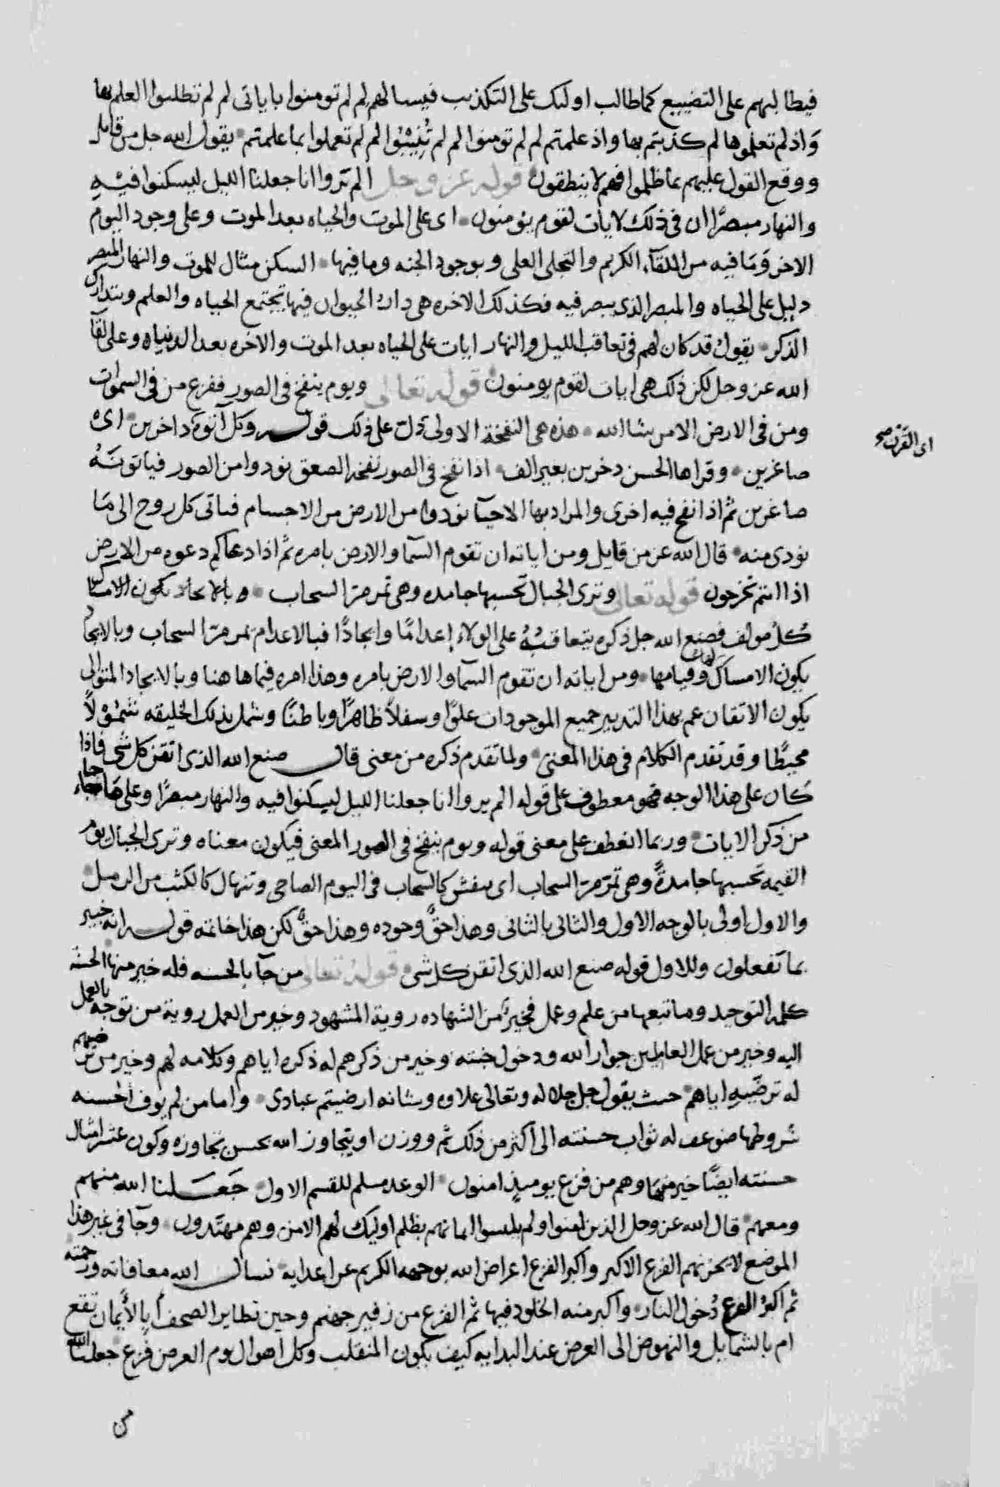 فيطالبهم على التضييع كما طالب اولئك على التكذيب فيسالهم لم لم تومنوا باياتى لم لم تطلبوا العلم بها
وَاذ لم تعلموها لم كذبتم بها واذ علمتم لم لم تومنوا لم لم تُنِيبُوا لم لم تعملوا بما علمتم يقول الله جل من قايل
ووقع القول عليهم بما ظلموا فهم لا ينطقون قوله عز وجل الم تروا انا جعلنا الليل ليسكنوا فيه
والنهار مبصرًا ان فى ذلك لايات لقوم يومنون اى على الموت والحياه بعد الموت وعلى وجود اليوم
الاخر وَمَا فيه من اللقآء الكريم والتجلى العلى وبوجود الجنه وما فيها السكن مثال للموت والنهار المبصر
دليل على الحياه والمبصر الذى يبصر فيه فكذلك الاخره هى دار الحيوان فيها يجتمع الحياه والعلم ويتدارك
الذكر يقول قد كان لهم فى تعاقب الليل والنهار ايات على الحياه بعد الموت والآخره بعد الدنيا وعلى لقآ
الله عز وجل لكن ذلك هى ايات لقوم يومنون قوله تعالى ويوم ينفخ فى الصور ففزع من فى السموات
ومن فى الارض الا من يشا الله هذه هى النفخة الاولى دَلّ على ذلك قوله وكل آتوه داخرين اى
اى القرن صح
صاغرين وقراها الحسن دخرين بغير الف اذا نفخ فى الصور نفخة الصعق نودوا من الصور فياتونَهُ
صاغرين ثم اذا نفخ فيه اخرى والمراد بها الاحيآ نودوا من الارض من الاجسام فياتى كل روح الى مَا
نودى منه قال الله عز من قايل ومن اياته ان تقوم السمآ والارض بامره ثم اذا دعاكم دعوه من الارض
اذا انتم تخرجون قوله تعالى وترى الجبال تحسبها جامده وهى تمر مر السحاب
كُل مولف فصنع الله جل ذكره يتعاقبُهُ على الولاء إعدامًا وايجادًا فبالاعدام تمر مر السحاب وبالايجاد
يكون الامساك وقيامها ومن اياته ان تقوم السمآ والارض بامره وهذا امره فيما هاهنا وبالايجاد المتوالى
يكون الاتقان عم بهذا التدبير جميع الموجودات علوًا وسفلاً ظاهرًا وباطنًا وشمل بذلك الخليقه شمولاً
محيطا وقد تقدم الكلام فى هذا المعنى ولما تقدم ذكره من معنى قال صنع الله الذى اتقن كل شى فاذا
كان على هذا الوجه فهو معطوف على قوله الم يروا انا جعلنا الليل ليسكنوا فيه والنهار مبصرًا وعلى ما جاء
من ذكر الايات وربما انعطف على معنى قوله ويوم ينفخ فى الصور المعنى فيكون معناه وترى الجبال يوم
القيمه تحسبها جامدةً وهى تمر مر السحاب اى ينفش كالسحاب فى اليوم الصاحى وتنهال كالكثب من الرمل
والاول اولى بالوجه الاول والثانى بالثانى وهذا حقٌ وجوده وهذا حقٌ لكن هذا خاتمه قوله انه خبير
بما تفعلون وللاول قوله صنع الله الذى اتقن كل شى قوله تعالى من جآ بالحسنه فله خير منها الحسنة
كلمه التوحيد وما تبعها من علم وعمل فخيرٌ من الشهاده روية المشهود وخير من العمل روية من توجه بالعمل
اليه وخير من عمل العاملين جوار الله ودخول جنته وخير من ذكرهم له ذكره اياهم وكلامه لهم وخير من
له ترضيهِ اياهم حيث يقول جل جلاله وتعالى علاوه وشانه ارضيتم عبادى واما من لم يوف الحسنه
شروطها ضوعف له ثواب حسنته الى اكثر من ذلك ثم ووزن او يتجاوز الله بحسن تجاوزه وكون عشر امثال
حسنته ايضًا خير منها وهم من فزع يوميذ امنون الوعد مسلم للقسم الاول جَعَلنا الله منهم
ومعهم قال الله عز وجل الذين امنوا ولم يلبسوا ايمانهم بظلم اوليك لهم الامن وهم مهتدون وجآ فى غير هذا
الموضع لا يحزنهم الفزع الاكبر واكبر الفزع اعراض الله بوجهه الكريم عن اعدايه نسال الله معافاته ورحمته
ثم اكبر الفزع دُخول النار واكبر منه الخلود فيها ثم الفزع من زفير جهنم وحين تطاير الصحف أبالأيمان تقع
ام بالشمايل والنهوض الى العرض عند البدايه كيف يكون المنقلب وكل اهوال يوم العرض فزع جعلنا الله
من